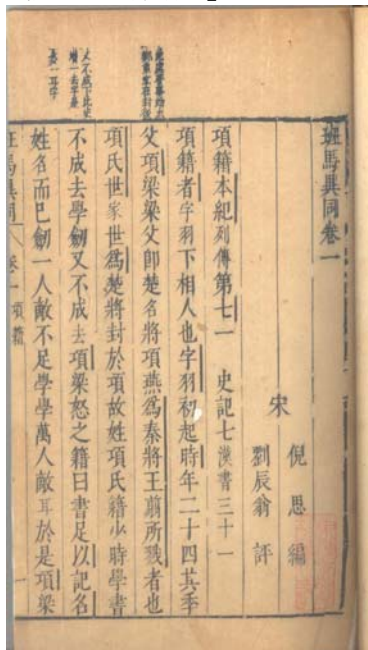 班馬異同卷一
宋
倪思編
劉辰翁評
項籍本紀列傳第七一 史記七漢書三十一
項籍者字羽下相人也字羽初起時年二十四其季
父項梁梁父即楚名將項燕爲秦將王翦所戮者也
項氏世家世爲楚將封於項故姓項氏籍少時學書
不成去學劒又不成去項梁怒之籍曰書足以記名
姓名而已劒一人敵不足學學萬人敵耳於是項梁
班馬異同
卷一項籍
一